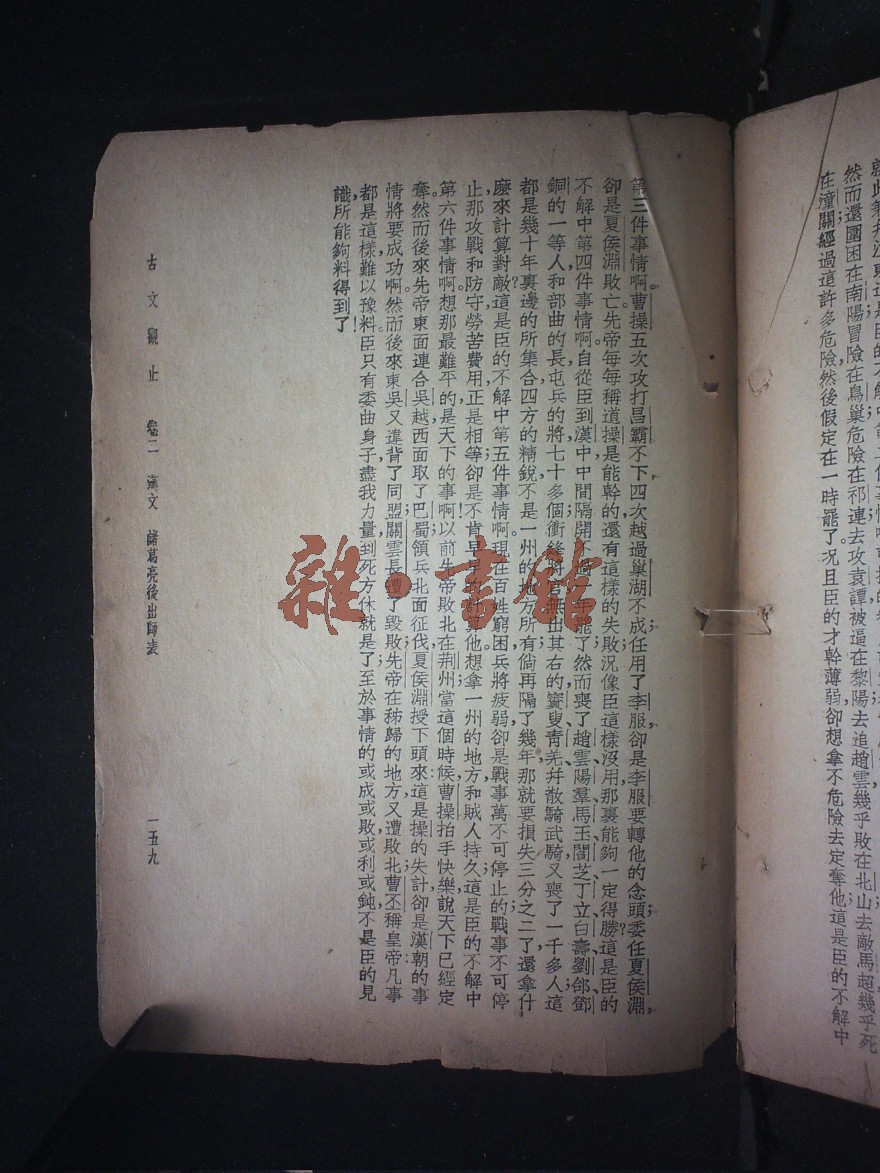 然而還圍困在南陽冒險在烏巢危險在祁連去攻袁譚被逼在黎陽去追趙雲幾乎敗在北山去敵馬超幾乎死
在潼關經過這許多危險然後假定在一時罷了。况且臣的才幹薄弱卻想拿不危險去定奪他這是臣的不解中
第三件事情啊。曹操五次攻打昌霸不下四次越過巢湖不成任用了李服，卻是李服要轉他的念頭；委任夏侯淵，
卻是夏侯淵敗亡。先帝每每稱道操是能幹的還有這樣的失敗；況像臣這樣沒用那裏能夠一定得勝？這是臣的
不解中第四件事情啊。自從臣到漢中中間隔開不過一年罷了；然而喪了趙雲、陽羣、馬玉、閻芝、丁立、白壽、劉郃、鄧
銅的一等人和部曲的長屯兵的將七十多個衝鋒將官無出其右的；竇叟青羌幷散騎武騎又喪了一千多人；這
都是幾十年裏邊的所集合四方的精銳，不是一州的地方所有；倘再隔了幾年，那就要損失三分之二了，還拿什
麼來計算對敵？這是臣的不解中第五件事情啊。現在百姓窮困，兵將疲弱，卻是戰事萬不可停止的；戰事不可停
止，那攻戰和防守勞苦費用，正是相等；卻是不肯早早的計算他。想拿一州的地方，和賊人持久；這是臣的不解中
第六件事情啊。想那最難平的是天下的事啊！以前先帝敗北在荆州，當這個時候，曹操拍手快樂，說天下已經定
奪。然而後來先帝東面連合吳越，西面取了巴蜀，領兵北面征伐，夏侯淵授下頭來；這是操的失計，卻是漢朝的事
情將要成功啊。然而後來東吳又違背了同盟，關雲長遭了毀敗，先帝在秭歸的地方又遭敗北，曹丕稱皇帝；凡事
都是這樣難以豫料。臣只有委曲身子盡我力量到死方休就是了；至於事情的或成或敗或利或鈍，不是臣的見
識，所能夠料得到了！
古文觀止 卷二 漢文 諸葛亮後出師表 一五九
雜·書館